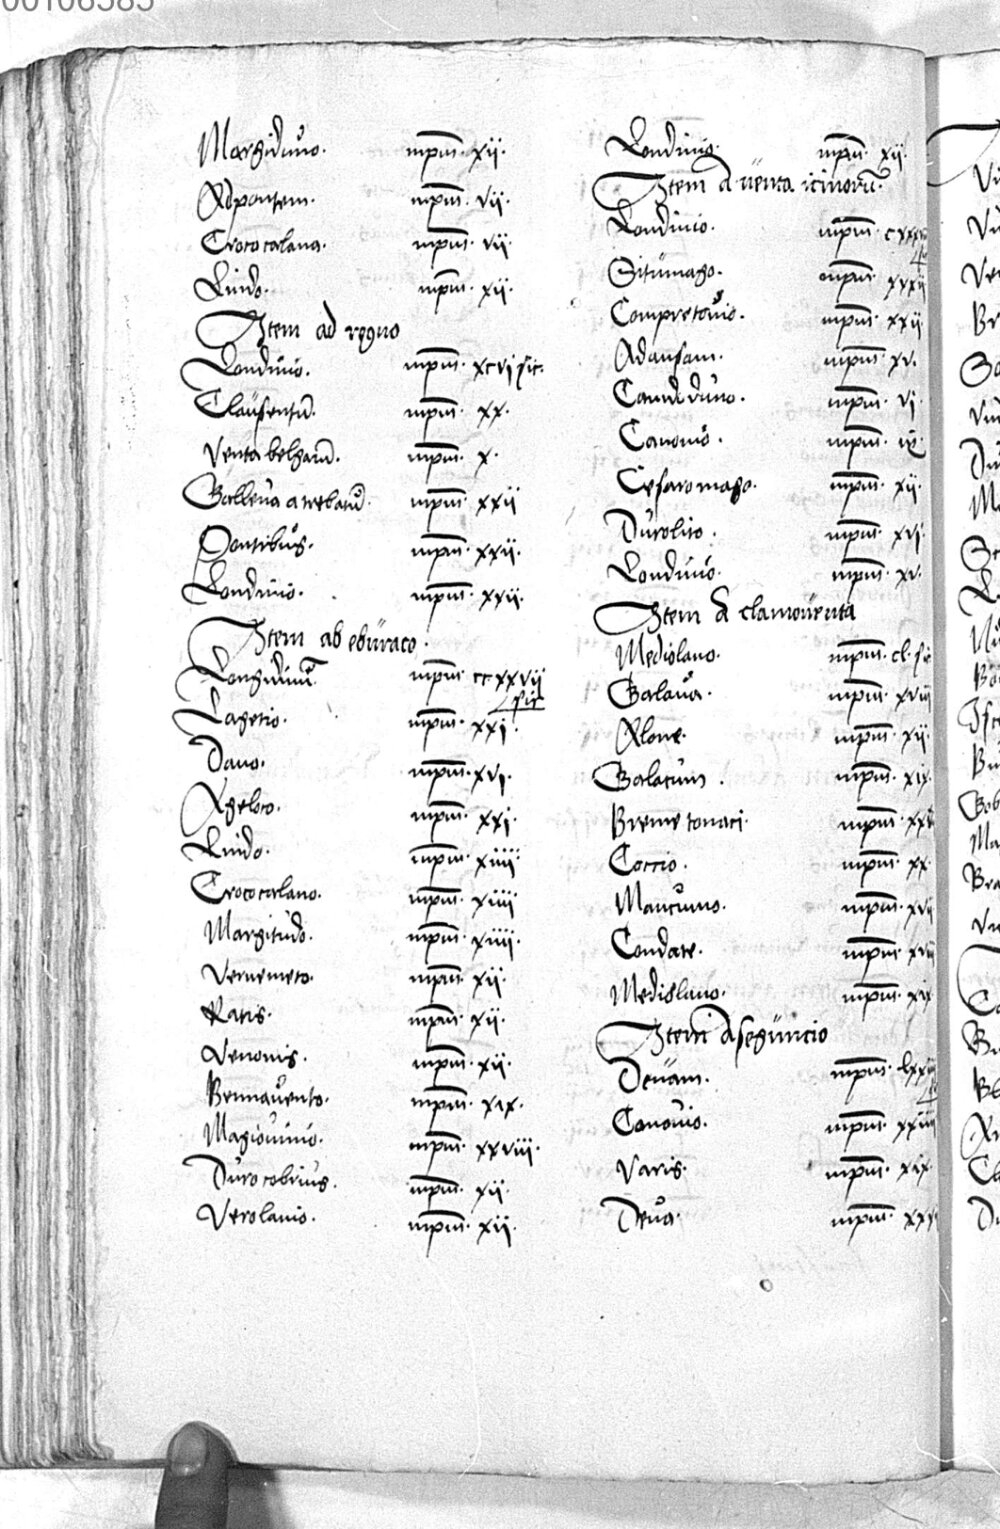 Margiduno. mpm. xii.
Adpontem. mpm. vii.
Crococalana. mpm. vii.
Lindo. mpm. xii.
Item ad regno
Londinio. mpm. xcvi sic.
Clausentū. mpm. xx.
Venta belgarū. mpm. x.
Galleua atrebatū. mpm. xxii
Pontibus. mpm. xxii.
Londinio. mpm. xxii.
Item ab eburaco.
Longidiniū. mpm. ccxxvii
sic
Lagecio. mpm. xxi.
Dano. mpm. xvi.
Ageloco. mpm. xxi.
Lindo. mpm. xiiii
Crococalano. mpm. xiiii
Margitudo. mpm. xiiii.
Vernemeto. mpm. xii.
Ratis. mpm. xii.
Venonis. mpm. xii.
Bennauento. mpm. xix.
Magiouinio. mpm. xxviii.
Durocobrius. mpm. xii.
Verolamo. mpm. xii.
Londinio. mpm. xii.
Item a uenta icinorū.
Londinio. mpm.
Situmago. mpm. xxxii
Compretouio. mpm. xxii
Adansam. mpm. xv.
Camuloduno. mpm. vi.
Canonio. mpm. ix
Cesaromago. mpm. xii.
Durolito. mpm. xvi.
Londinio. mpm. xv.
Item a clamouenta
Mediolano. mpm. cl. sic
Galaua. mpm. xviii
Alone. mpm. xii.
Galacum. mpm. xix.
Bremetonaci. mpm.
Coccio. mpm. xx.
Mancunio. mpm.
Condate. mpm.
Mediolano. mpm. xix
Item a seguncio
Deuam. mpm.
Canouio. mpm. xxiiii
Varis. mpm. xix.
Deua. mpm.